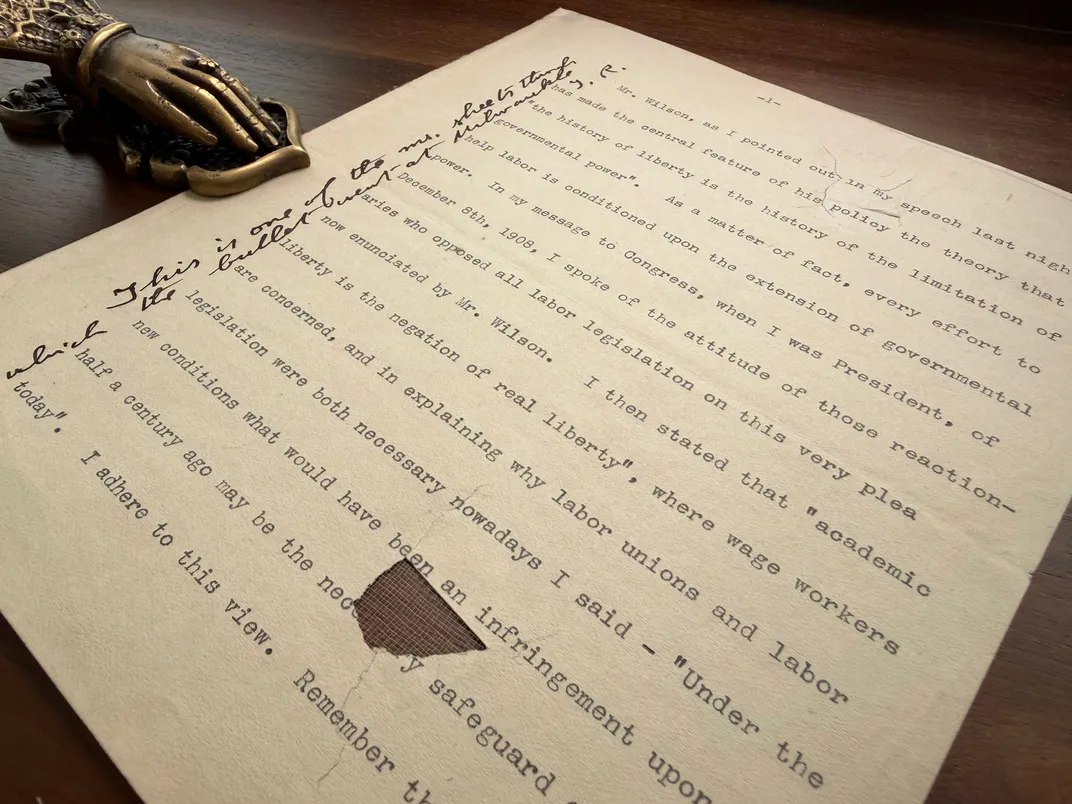 This is one of the ms. sheets through
which the bullet went at Milwaukee. T. R.
-1-
Mr. Wilson, as I pointed out in my speech last nigh
has made the central feature of his policy the theory that
"the history of liberty is the history of the limitation of
governmental power". As a matter of fact, every effort to
help labor is conditioned upon the extension of governmental
power. In my message to Congress, when I was President, of
December 8th, 1908, I spoke of the attitude of those reaction-
aries who opposed all labor legislation on this very plea
now enunciated by Mr. Wilson. I then stated that "academic
liberty is the negation of real liberty", where wage workers
are concerned, and in explaining why labor unions and labor
legislation were both necessary nowadays I said - "Under the
new conditions what would have been an infringement upon
half a century ago may be the nec y safeguard
today". I adhere to this view. Remember th